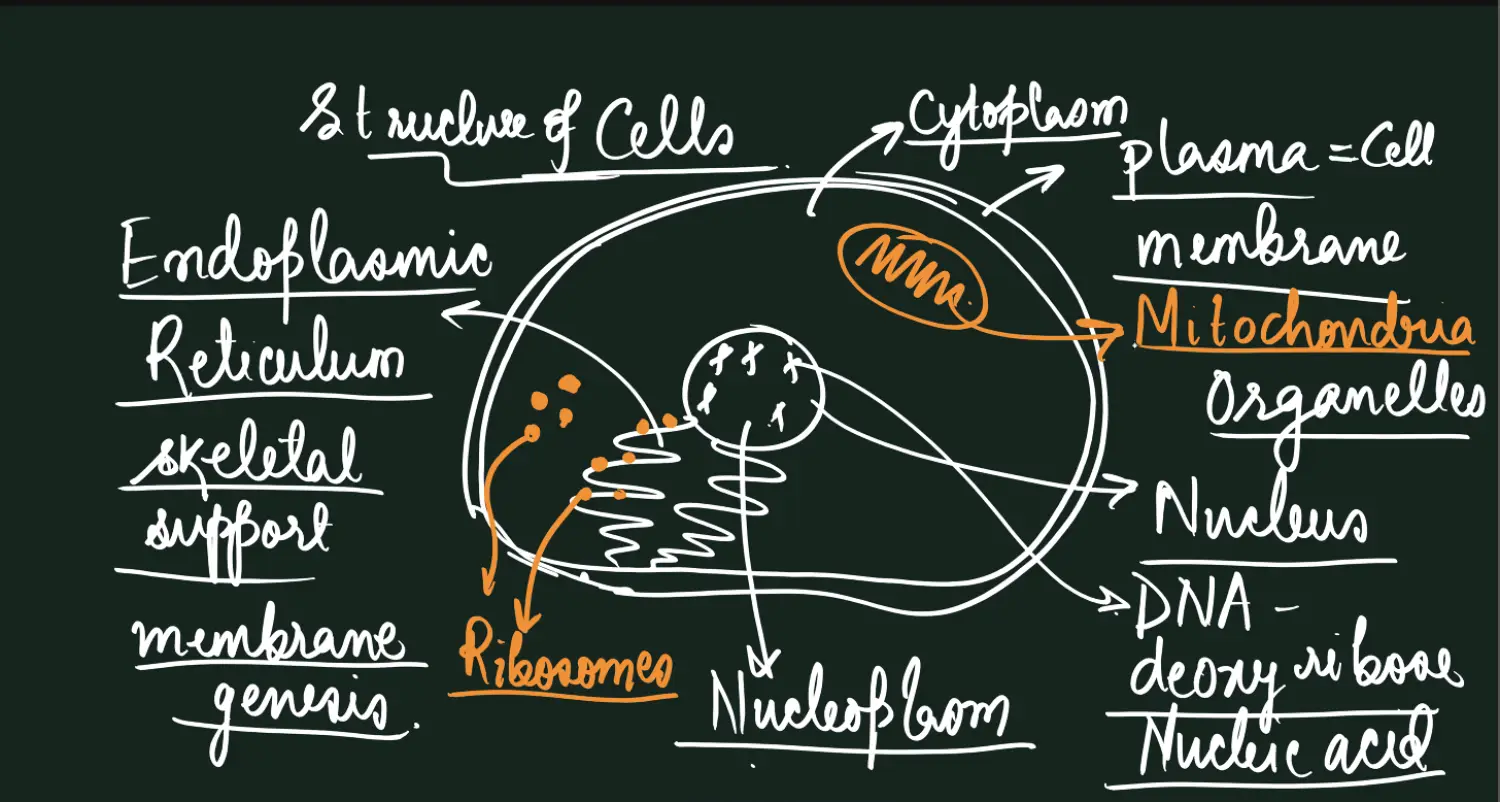 Structure of Cells
Cytoplasm
plasma = Cell
membrane
Mitochondria
Organelles
Nucleus
DNA -
deoxy ribose
Nucleic acid
Endoplasmic
Reticulum
skeletal
support
membrane
genesis.
Ribosomes
Nucleoplasm